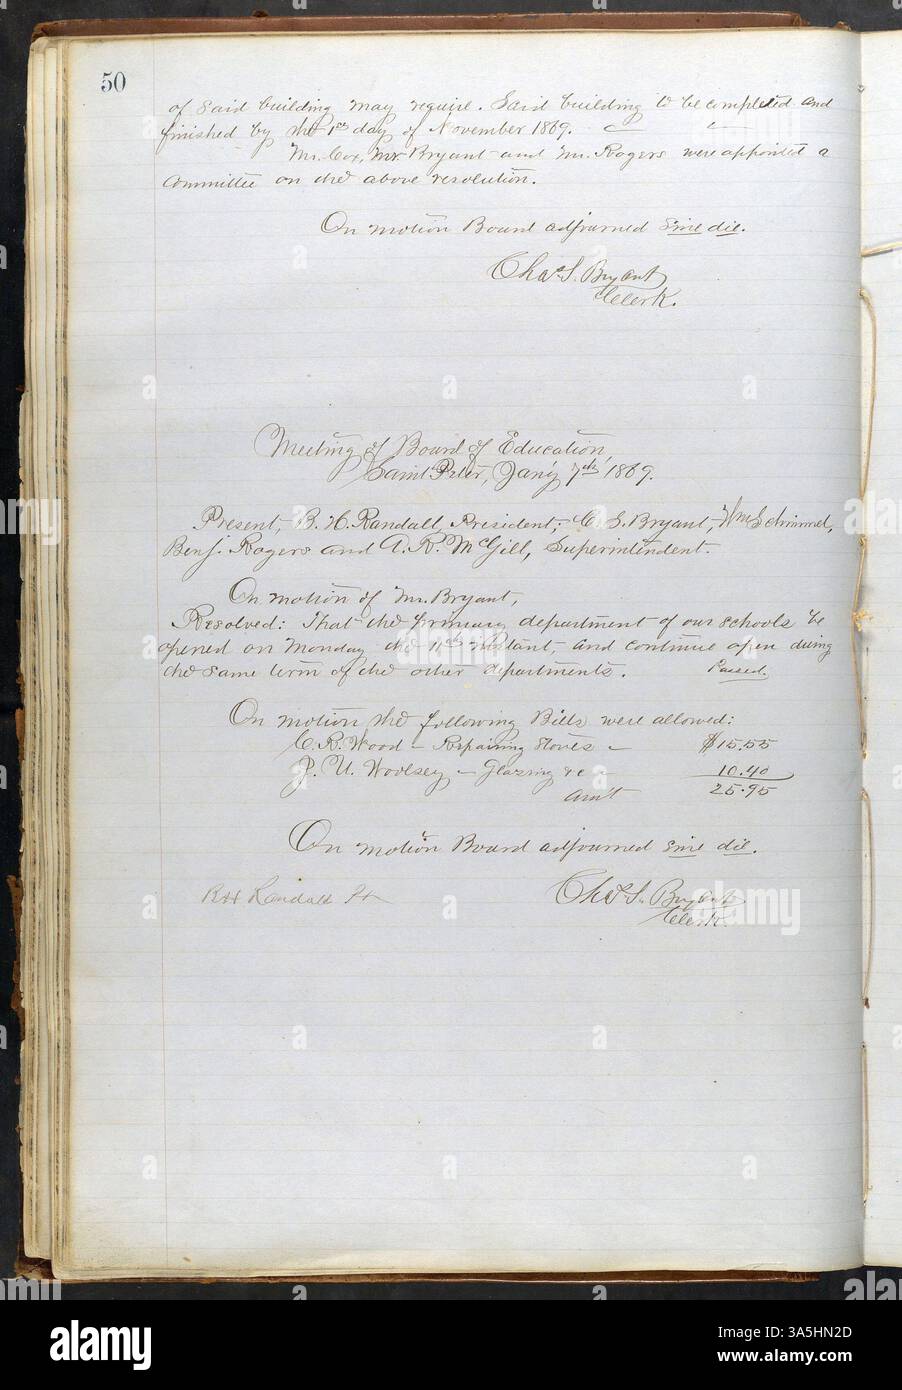 50
of said building may require. Said building to be completed and
finished by the 1st day of November 1869.
Mr. Cox, Mr Bryant and Mr. Rogers were appointed a
committee on the above resolution.
On motion Board adjourned sine die.
Chas S. Bryant
Clerk.
Meeting of Board of Education,
Saint Peter, Jan'y 7th 1869.
Present, B. H. Randall, President, C. S. Bryant, Wm Schimmel,
Benj. Rogers and A. R. McGill, Superintendent.
On motion of Mr. Bryant,
Resolved: That the primary department of our schools be
opened on Monday the 11th instant, and continue open during
the same term of the other departments. Passed.
On motion the following Bills were allowed:
C. R. Wood - Repairing stoves - $15.55
J. U. Woolsey - Glazing &c - 10.40
Am't 25.95
On motion Board adjourned sine die.
BH Randall Pt
Chas S. Bryant
Clerk.
alamy
a
alamy
Image ID: 3A5HN2D
www.alamy.com